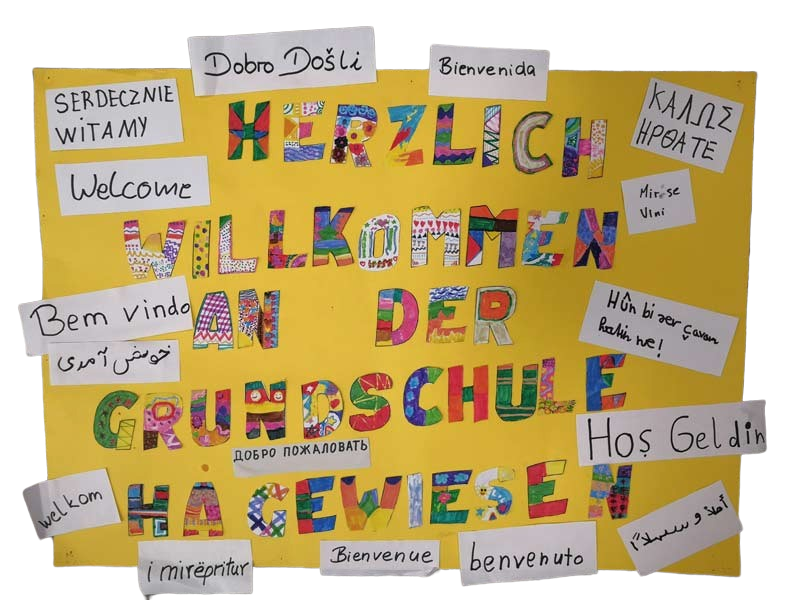 Dobro Došli
Bienvenida
SERDECZNIE
WITAMY
ΚΑΛΩΣ
ΗΡΘΑΤΕ
HERZLICH
Welcome
Mirëse
Vini
WILLKOMMEN
Bem vindo
AN DER
Hûn bi ser çavan
hatin ne!
خوش آمدی
GRUNDSCHULE
Hoş Geldin
ДОБРО ПОЖАЛОВАТЬ
welkom
HAGEWIESEN
أهلا و سهلاً
i mirëpritur
Bienvenue
benvenuto